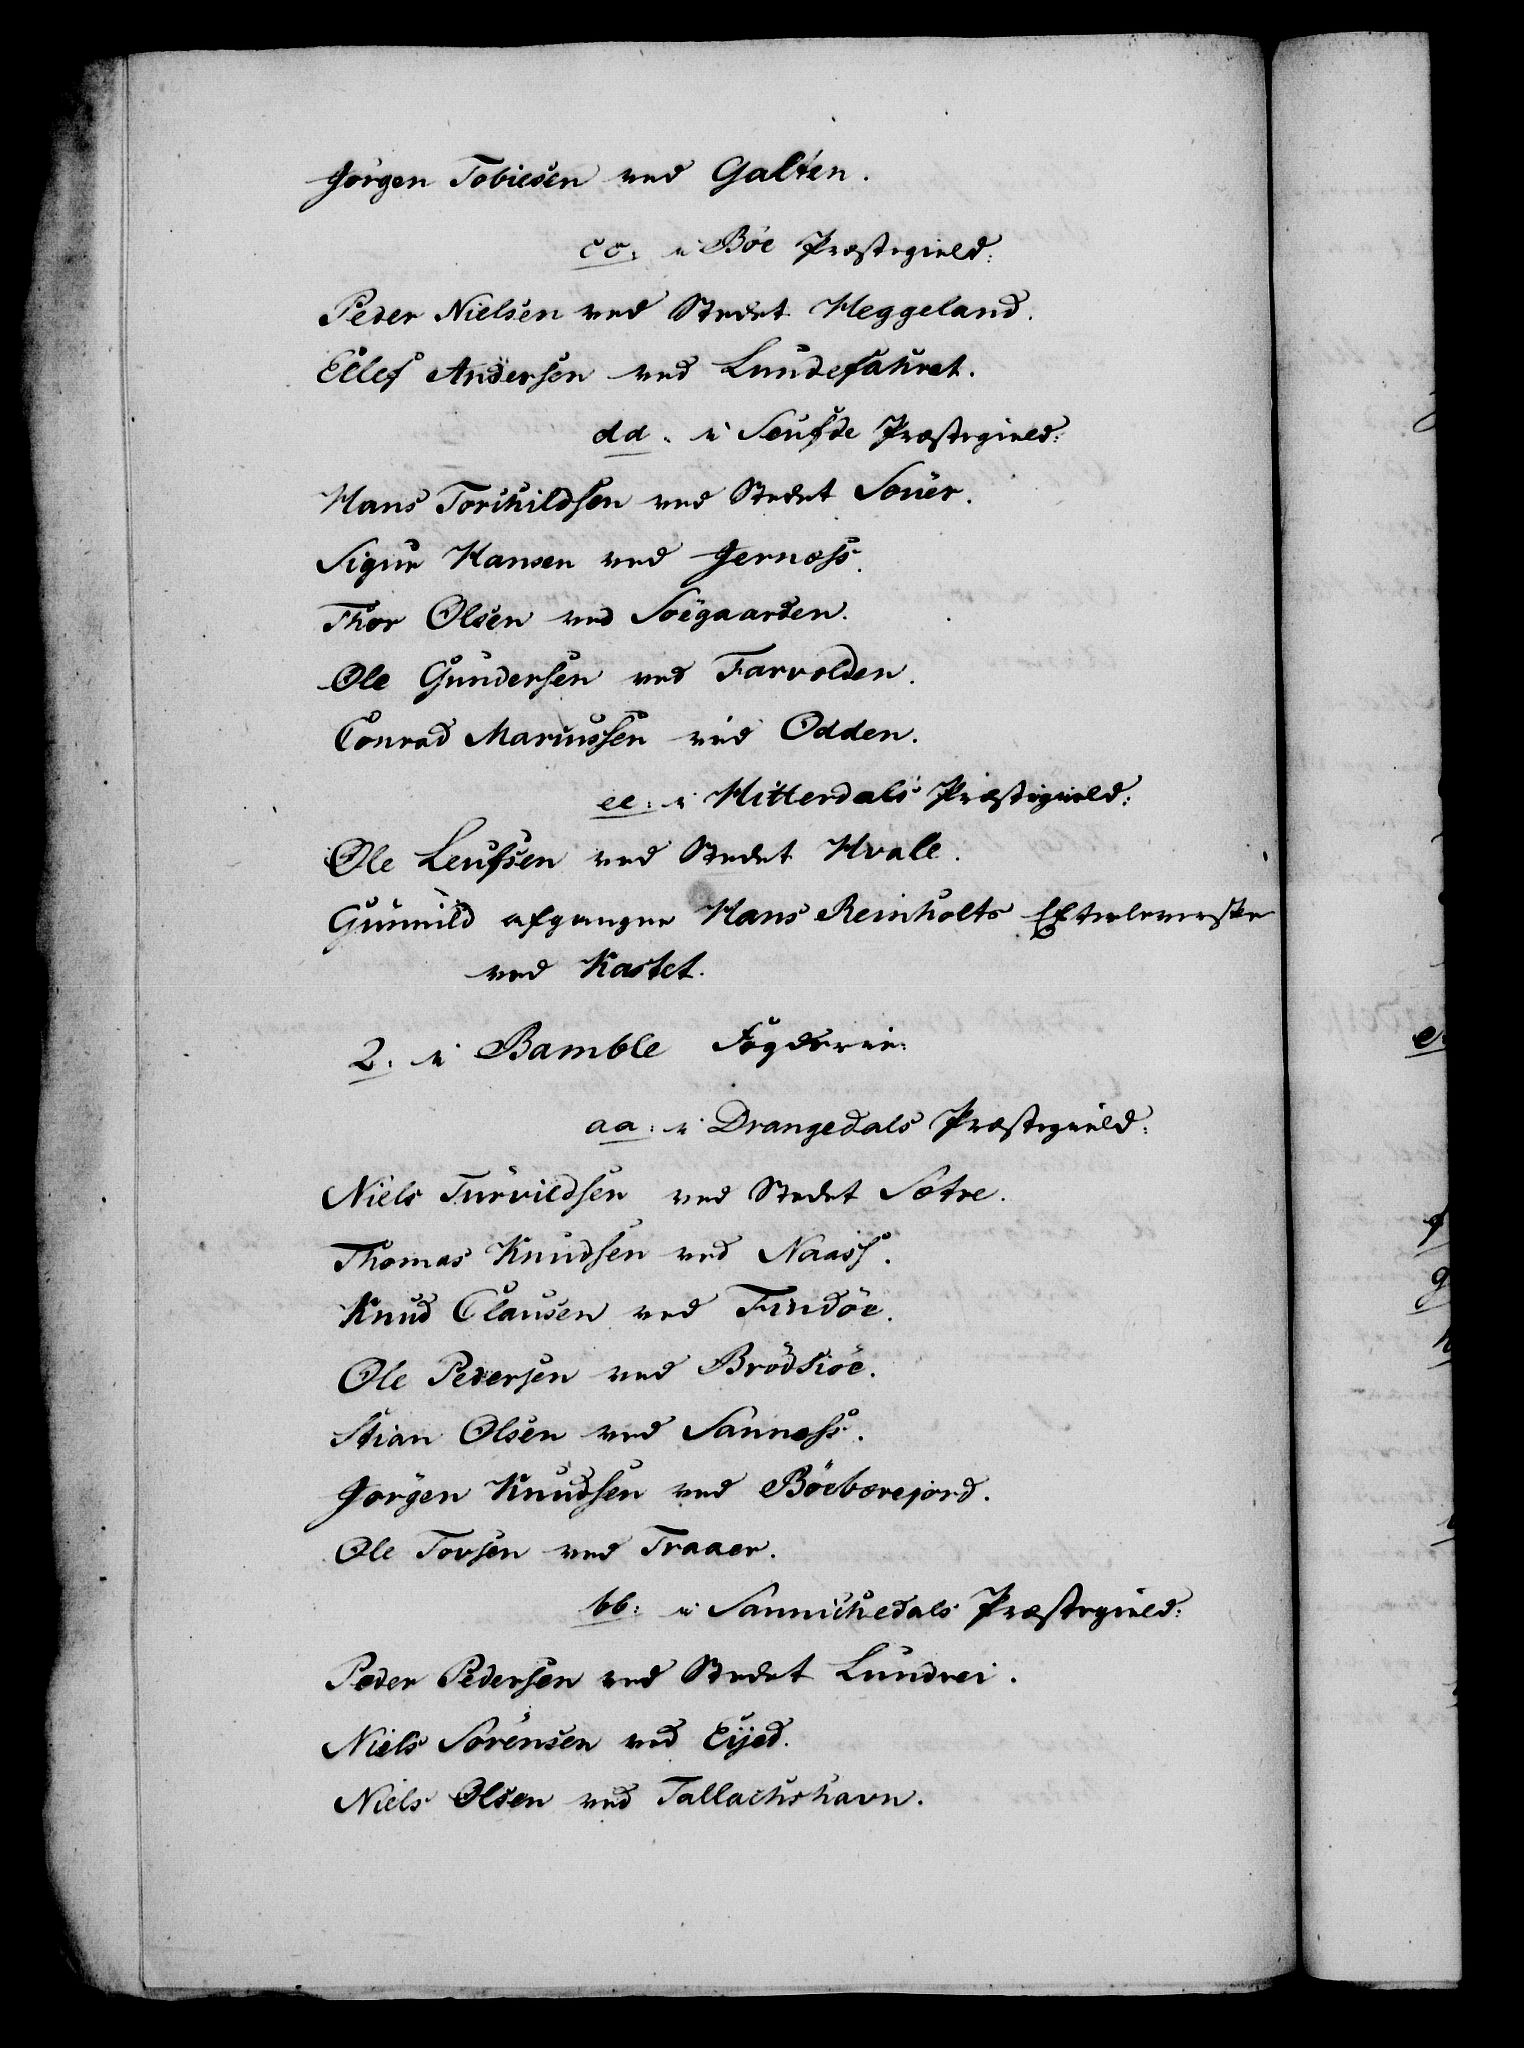 Jörgen Tobiesen ved Galten.
cc. i Böe Præstegield:
Peder Nielsen ved Stedet Heggeland.
Ellef Andersen ved Lundefahret.
dd. i Seufde Præstegield:
Hans Torchildsen ved Stedet Souer.
Sigur Hansen ved Jernæss.
Thor Olsen ved Söegaarden.
Ole Gundersen ved Farvolden.
Conrad Mariussen ved Odden.
ee. i Hitterdals Præstegield:
Ole Leufsen ved Stedet Hvale.
Gunnild afgangne Hans Reinholts Efterleverske
ved Kastet.
2. i Bamble Fogderie:
aa. i Drangedals Præstegield:
Niels Turvildsen ved Stedet Sætre.
Thomas Knudsen ved Naass.
Knud Clausen ved Findöe.
Ole Pedersen ved Brödsiöe.
Stian Olsen ved Sannæss.
Jörgen Knudsen ved Böebærejord.
Ole Tovsen ved Traaer.
bb. i Sannichedals Præstegield:
Peder Pedersen ved Stedet Lundrei.
Niels Sörensen ved Eijed.
Niels Olsen ved Tallachshavn.